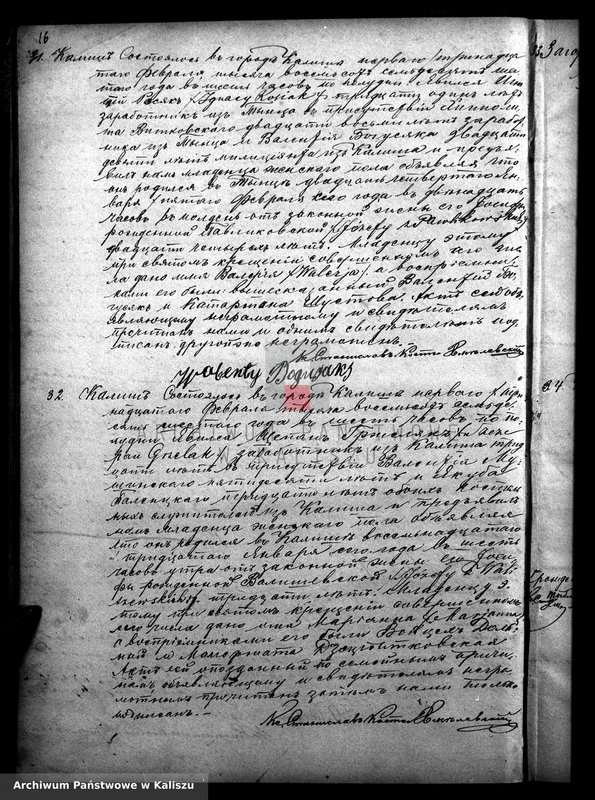 16
31. Калишъ Состоялось въ городѣ Калишѣ перваго / тринадца-
таго Февраля тысяча восемьсотъ семьдесятъ шес-
таго года въ шесть часовъ по полудни Явился Игна-
цій (Ignacy Kosiak) тридцати одинъ лѣтъ
заработникъ изъ Тынца въ присутствіи Ипполи-
та Витковскаго двадцати восьми лѣтъ заработ-
ника изъ Тынца и Валентія Богусяка двадцати
девяти лѣтъ изъ Калиша и предъя-
вилъ намъ младенца женскаго пола объявляя что
онъ родился въ Тынцѣ двадцать четвертаго Ян-
варя / пятаго Февраля сего года въ двѣнадцать
часовъ въ полдень отъ законной жены его Іосефы
рожденной Павликовской (Józefy z Pawlikowskich)
двадцати четырехъ лѣтъ. Младенцу этому
при святомъ крещеніи совершенномъ сего чис-
ла дано имя Валерія (Walerja), а воспріемни-
ками его были вышесказанный Валентій Бог-
усякъ и Катаржина Шустова. Актъ сей объ-
являющему неграмотному и свидѣтелямъ
прочитанъ нами и однимъ свидѣтелемъ под-
писанъ, другой неграмотенъ.
Кс. Станиславъ Костка
32. Калишъ Состоялось въ городѣ Калишѣ перваго / три-
надцатаго Февраля тысяча восемьсотъ семьде-
сятъ шестаго года въ шесть часовъ по по-
лудни явился Щепанъ
заработникъ изъ Калиша трид-
цати лѣтъ въ присутствіи Валентія
пятидесяти лѣтъ и Якуба
тридцати лѣтъ обоихъ костель-
ныхъ служителей изъ Калиша и предъявилъ
намъ младенца женскаго пола объявляя
что онъ родился въ Калишѣ восемьнадцатаго
/ тридцатаго Января сего года въ шесть
часовъ утра отъ законной жены его Іосе-
фы рожденной Валишевской (Józefy z Wali-
szewskich) тридцати лѣтъ. Младенцу э-
тому при святомъ крещеніи совершенномъ
сего числа дано имя Маріанна
а воспріемниками его были Войцехъ
и Малгожата
Актъ сей опозданный по семейнымъ причи-
намъ объявляющему и свидѣтелямъ негра-
мотнымъ прочитанъ затѣмъ нами только
подписанъ.
Кс. Станиславъ Костка
33. Загор
34.
Archiwum Państwowe w Kaliszu